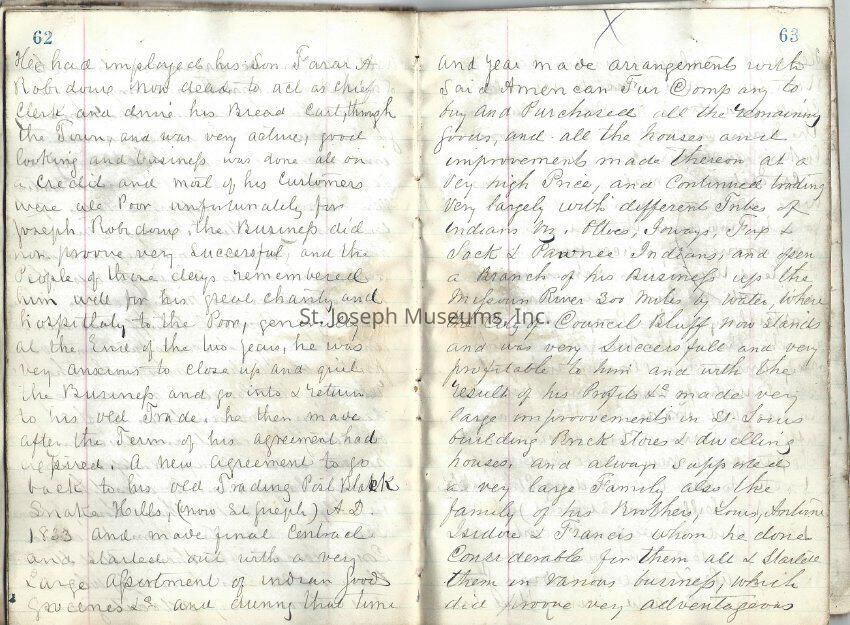 62
He had imployed his Son Farar A
Robidoux now dead to act as chief
Clerk and drive his Bread Cart, through
the Town, and was very active, good
looking and business was done all on
a Credit and most of his Customers
were all Poor unfortunately for
Joseph Robidoux, the Business did
not proove very Successful, and the
People of those days remembered
him well for his great charity and
hospitality to the Poor, generally
at the End of the two years, he was
very anxious to close up and quit
the Business and go into & return
to his old Trade. he then made
after the Term of his agreement had
expired. A new agreement to go
back to his old Trading Post Black
Snake Hills, (now St Joseph) A.D.
1833 and made final Contract
and started out with a very
Large Assortment of indian Goods
Groceries &c and during that time
63
X
and year made arrangements with
Said American Fur Company to
buy and Purchased all the remaining
goods, and all the houses and
improvements made thereon at a
very high Price, and Continued trading
very largely with different Tribes of
Indians Ottoes, Ioways, Fox &
Sack & Pawnee Indians, and open
a Branch of his Business up the
Missouri River 300 Miles by water, where
the City of Council Bluff, now stands
and was very Successfull and very
profitable to him and with the
result of his Profits &c made very
large improovements in St. Louis
building Brick Stores & dwelling
houses, and always Supported
a very large Family also the
family of his Brother, Louis, Antoine
Isidore & Francis whom he done
Considerable for them all & Started
them in various business, which
did proove very advantageous
St. Joseph Museums, Inc.